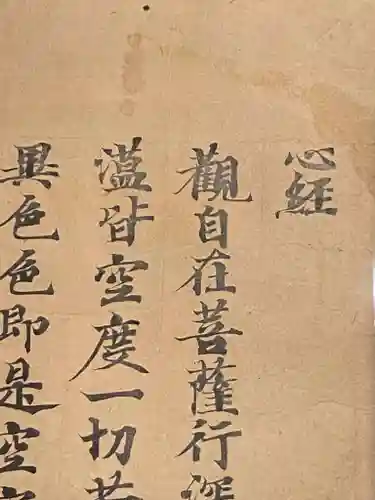 心經
觀自在菩薩行深
蕰皆空度一切苦
異色色即是空